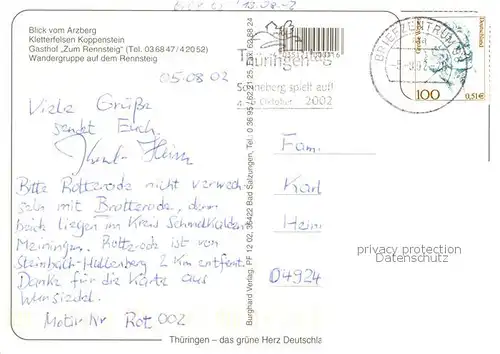 Blick vom Arzberg
Kletterfelsen Koppenstein
Gasthof "Zum Rennsteig" (Tel. 036847/42052)
Wandergruppe auf dem Rennsteig
05.08.02
Viele Grüße
sendet Euch
Karl-Heinz
Bitte Rotterode nicht verwech
seln mit Brotterode, denn
beide liegen im Kreis Schmalkalden
Meiningen. Rotterode ist von
Steinbach-Hallenberg 2 km entfernt.
Danke für die Karte aus
Wunsiedel.
Motiv Nr Rot 002
Burghard Verlag, PF 12 02, 36422 Bad Salzungen, Tel.: 0 36 95 / 62 21 25, Fax: 62 88 24
Thüringen
Sonneberg spielt auf!
Oktober 2002
BRIEFZENTRUM
Deutschland
100
0,51€
Fam.
Karl
Hein
04924
privacy protection
Datenschutz
Thüringen – das grüne Herz Deutschla